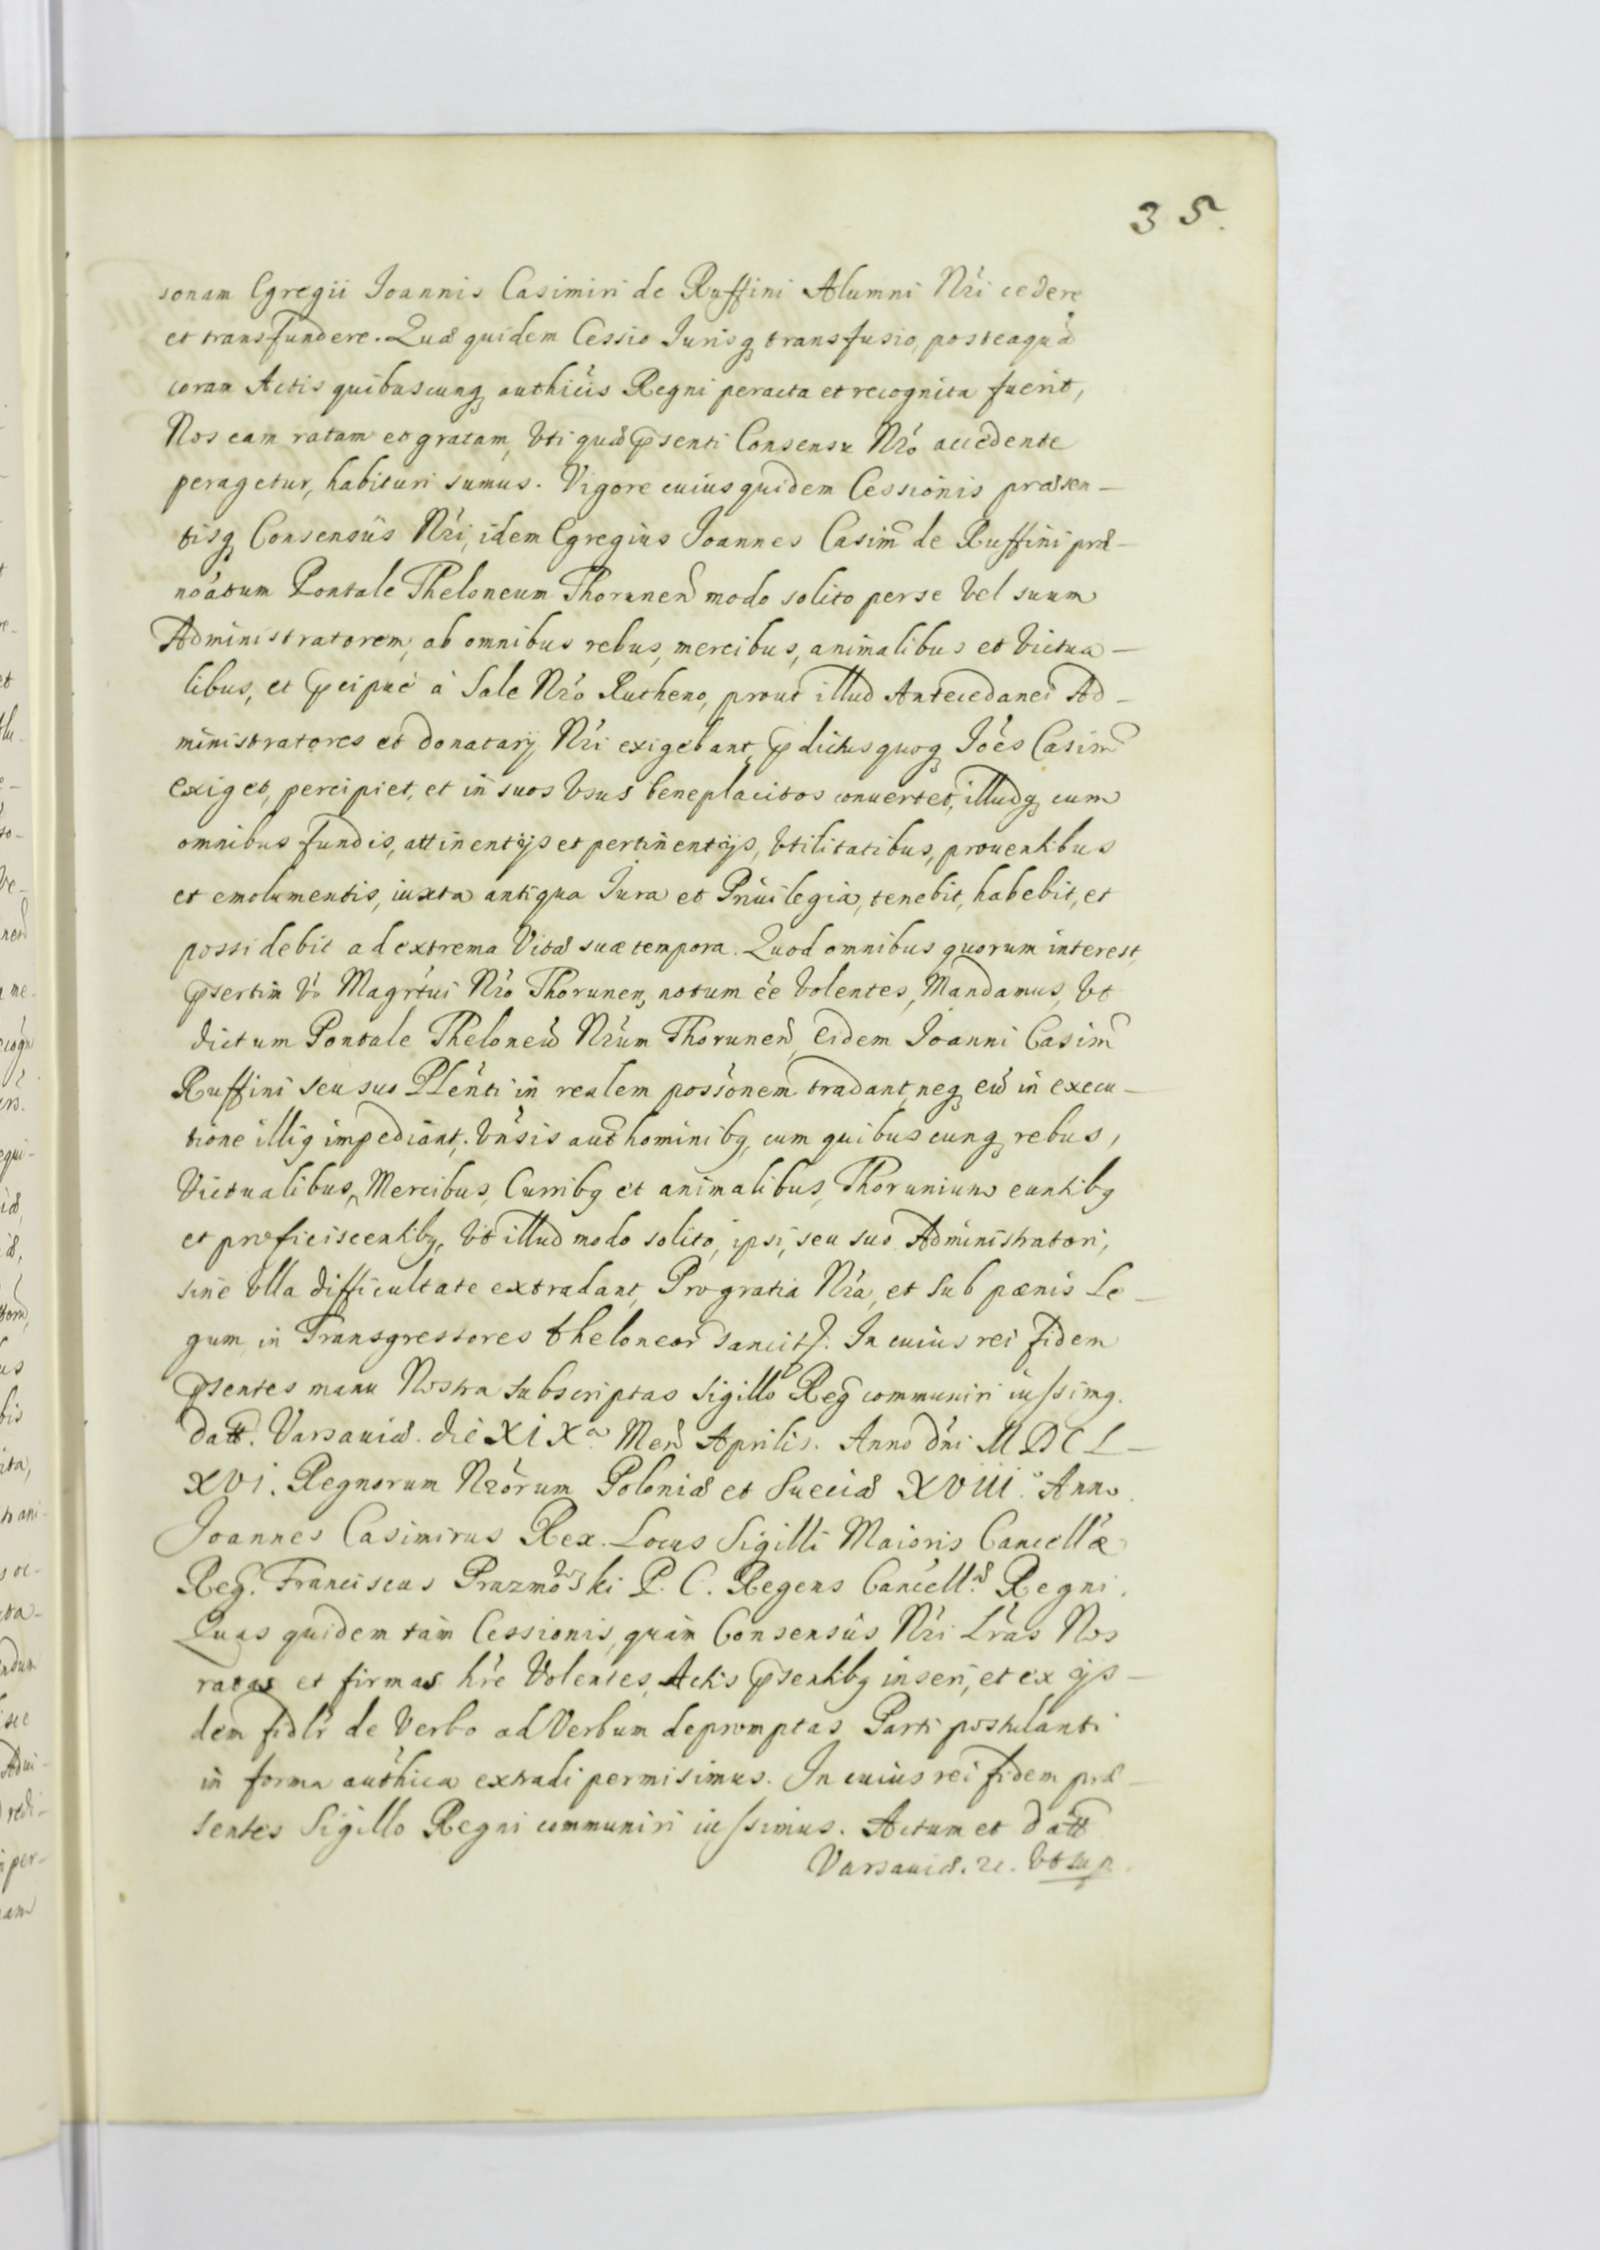 35.
sonam Egregii Joannis Casimiri de Ruffini Alumni Nri cedere
et transfundere. Quæ quidem Cessio Jurisq transfusio, posteaquã
coram Actis quibuscunq authicis Regni peracta et recognita fuerit,
Nos eam ratam et gratam, Vti quæ psenti Consensu Nro accedente
peragetur, habituri sumus. Vigore cuius quidem Cessionis præsen-
tisq Consensus Nri, idem Egregius Joannes Casim de Ruffini præ-
noatum Pontale Theloneum Thorunen modo solito per se Vel suum
Administratorem, ab omnibus rebus, mercibus, animalibus et Victua-
libus, et pcipue à Sale Nro Rutheno, prout illud Antecedanei Ad-
ministratores et donatarij Nri exigebant, pdictus quoq Joes Casim
exiget, percipiet, et in suos Vsus beneplacitos conuertet, illudq cum
omnibus fundis, attinentijs et pertinentijs, Vtilitatibus, prouentibus
et emolumentis, iuxta antiqua Jura et Priuilegia, tenebit, habebit, et
possidebit ad extrema Vitæ suæ tempora. Quod omnibus quorum interest,
psertim Vo Magrtui Nro Thorunen, notum ee Volentes, Mandamus, Vt
dictum Pontale Theloneũ Nrum Thorunen, eidem Joanni Casim
Ruffini seu suo Plenti in realem possionem tradant, neq eũ in execu-
tione illiq impediant, Vnsis aut hominibq, cum quibuscunq rebus,
Victualibus, Mercibus, Curribq et animalibus, Thorunium euntibq
et proficiscentibq, Vt illud modo solito, ipsi, seu suo Administratori,
sine Vlla difficultate extradant, Pro gratia Nra, et sub pænis Le-
gum in Transgressores theloneor sancit. In cuius rei fidem
psentes manu Nostra subscriptas Sigillo Reg communiri iussimq.
datt. Varsauiæ. die XIXa Men Aprilis. Anno dni MDCL-
XVI. Regnorum Nrorum Poloniæ et Sueciæ XVIIIo Anno.
Joannes Casimirus Rex. Locus Sigilli Maioris Cancellæ
Reg. Franciscus Prazmowski P. C. Regens Cancellæ Regni.
Quas quidem tam Cessionis, quam Consensus Nri Lras Nos
ratas et firmas hre Volentes, Actis psentibq inseri, et ex ijs-
dem fidlr de Verbo ad Verbum depromptas Parti postulanti
in forma authica extradi permisimus. In cuius rei fidem præ-
sentes Sigillo Regni communiri iussimus. Actum et datt
Varsauiæ. Vt sup.